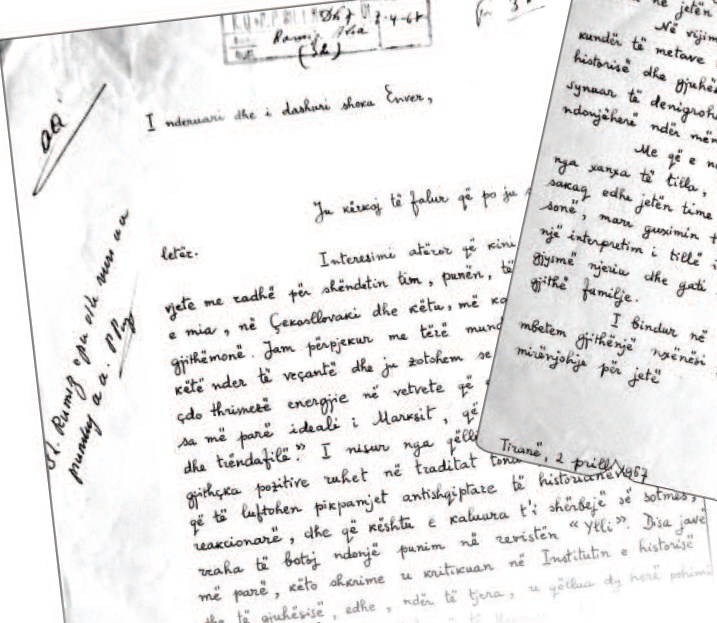 3-4-67
Ramiz Alia
(Sh)
I nderuari dhe i dashuri shoku Enver,
Ju kërkoj të falur që po ju s
letër.
Interesimi atëror që kini
vjete me radhë për shëndetin tim, punën, të
e mia, në Çekosllovaki dhe këtu, më ka
gjithëmonë. Jam përpjekur me tërë mund
këtë nder të veçantë dhe ju zotohem se
çdo thrimëzë energjie në vetvete që
sa më parë ideali i Marksit, që
dhe trëndafilë." I nisur nga qëll
gjithçka pozitive ruhet në traditat tona
që të luftohen pikpamjet antishqiptare të historianëve
reakcionarë, dhe që kështu e kaluara t'i shërbejë së sotmes,
rraha të botoj ndonjë punim në revistën "Ylli". Disa javë
më parë, këto shkrime u kritikuan në Institutin e historisë
dhe të gjuhësisë, edhe, ndër të tjera, u
në jetën
Në vijim
kundër të metave
historisë dhe gjuhës
synuar të denigroh
ndonjëherë ndër mën
Me që e n
nga xanxa të tilla,
sakaq edhe jetën time
sonë, marr guximin t
një interpretim i tillë i
gjysmë njeriu dhe gati
gjithë familje.
I bindur në
mbetem gjithënjë nxënësi
mirënjohje për jetë
Tiranë, 2 prill 1967